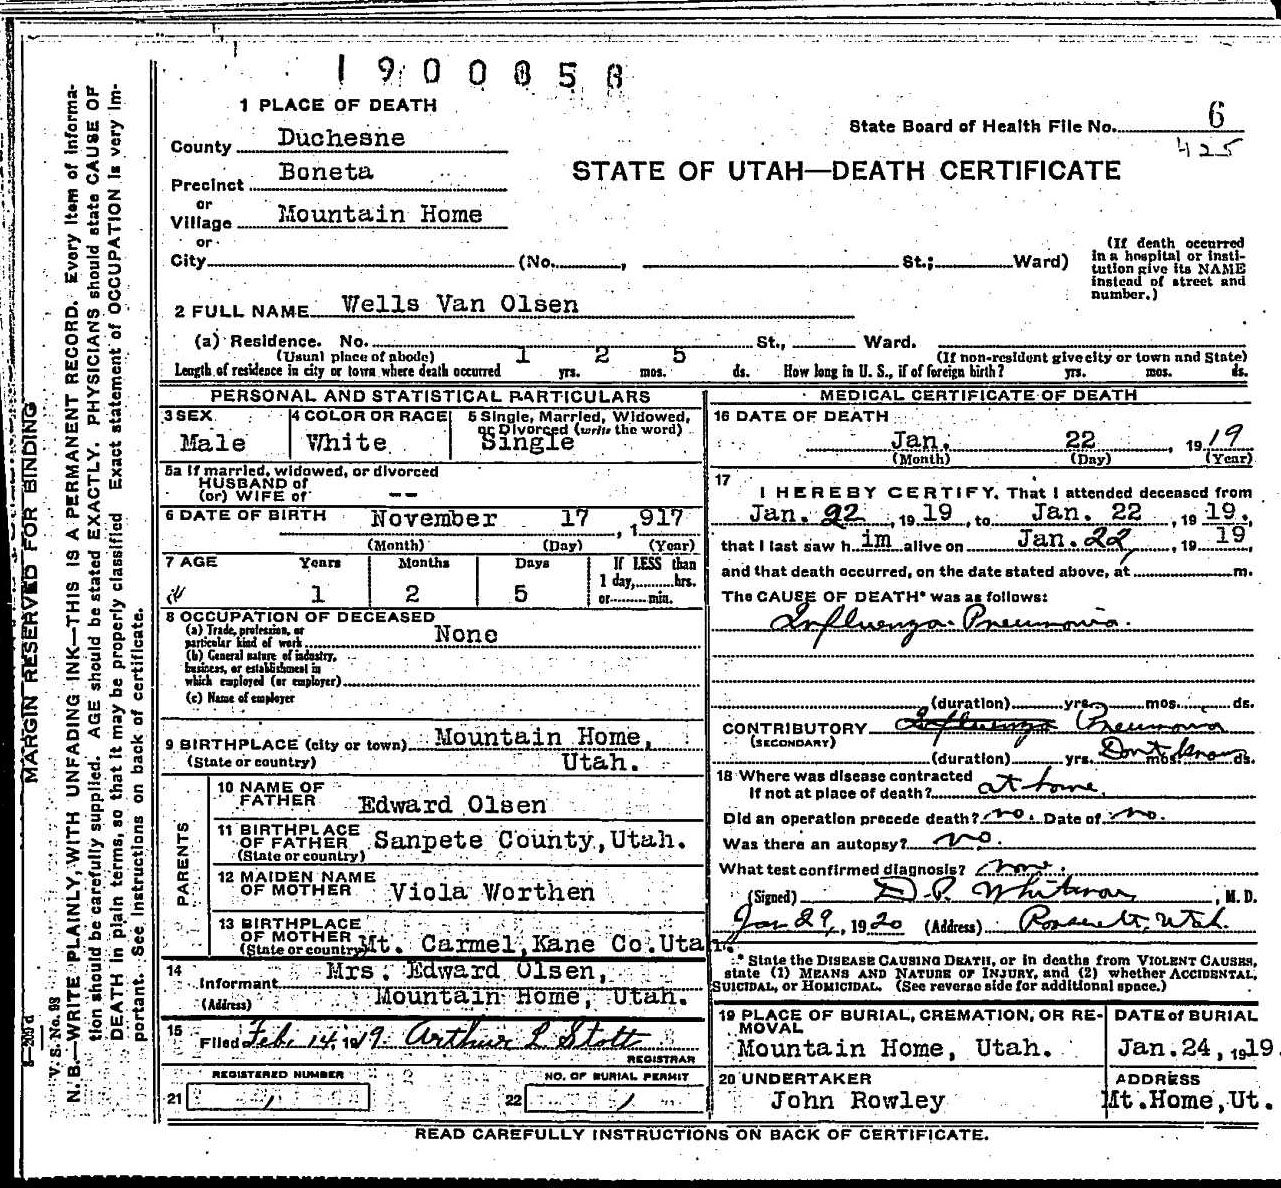 1900058
1 PLACE OF DEATH
State Board of Health File No. 6
425
County Duchesne
STATE OF UTAH—DEATH CERTIFICATE
Precinct Boneta
or
Village Mountain Home
or
City (No. , St.; Ward)
(If death occurred in a hospital or institution give its NAME instead of street and number.)
2 FULL NAME Wells Van Olsen
(a) Residence. No. St., Ward.
(Usual place of abode) (If non-resident give city or town and State)
Length of residence in city or town where death occurred 1 yrs. 2 mos. 5 ds. How long in U. S., if of foreign birth? yrs. mos. ds.
PERSONAL AND STATISTICAL PARTICULARS
3 SEX Male
4 COLOR OR RACE White
5 Single, Married, Widowed, or Divorced (write the word) Single
5a If married, widowed, or divorced
HUSBAND of
(or) WIFE of --
6 DATE OF BIRTH November 17, 1917
(Month) (Day) (Year)
7 AGE Years Months Days If LESS than
1 day, hrs.
1 2 5 or min.
8 OCCUPATION OF DECEASED
(a) Trade, profession, or particular kind of work None
(b) General nature of industry, business, or establishment in which employed (or employer)
(c) Name of employer
9 BIRTHPLACE (city or town) Mountain Home,
(State or country) Utah.
PARENTS
10 NAME OF FATHER Edward Olsen
11 BIRTHPLACE OF FATHER Sanpete County, Utah.
(State or country)
12 MAIDEN NAME OF MOTHER Viola Worthen
13 BIRTHPLACE OF MOTHER
(State or country) Mt. Carmel, Kane Co. Utah.
14 Informant Mrs. Edward Olsen,
(Address) Mountain Home, Utah.
15 Filed Feb. 14, 1919. Arthur L Stott
REGISTRAR
REGISTERED NUMBER
21 1
NO. OF BURIAL PERMIT
22 1
MEDICAL CERTIFICATE OF DEATH
16 DATE OF DEATH
Jan. 22 1919
(Month) (Day) (Year)
17
I HEREBY CERTIFY, That I attended deceased from
Jan. 22, 1919, to Jan. 22, 1919.,
that I last saw him alive on Jan. 22, 1919,
and that death occurred, on the date stated above, at m.
The CAUSE OF DEATH* was as follows:
Influenza-Pneumonia.
(duration) yrs. mos. ds.
CONTRIBUTORY Influenza Pneumonia
(SECONDARY)
(duration) yrs. mos. ds. Don't know
18 Where was disease contracted
If not at place of death? at home.
Did an operation precede death? no. Date of no.
Was there an autopsy? no.
What test confirmed diagnosis?
(Signed) , M. D.
Jan 29, 1920 (Address) Utah.
* State the DISEASE CAUSING DEATH, or in deaths from VIOLENT CAUSES,
state (1) MEANS AND NATURE OF INJURY, and (2) whether ACCIDENTAL,
SUICIDAL, or HOMICIDAL. (See reverse side for additional space.)
19 PLACE OF BURIAL, CREMATION, OR REMOVAL
Mountain Home, Utah.
DATE of BURIAL
Jan. 24, 1919.
20 UNDERTAKER
John Rowley
ADDRESS
Mt. Home, Ut.
READ CAREFULLY INSTRUCTIONS ON BACK OF CERTIFICATE.
MARGIN RESERVED FOR BINDING
N. B.—WRITE PLAINLY, WITH UNFADING INK—THIS IS A PERMANENT RECORD. Every item of informa-
tion should be carefully supplied. AGE should be stated EXACTLY. PHYSICIANS should state CAUSE OF
DEATH in plain terms, so that it may be properly classified. Exact statement of OCCUPATION is very im-
portant. See instructions on back of certificate.
V. S. No. 98